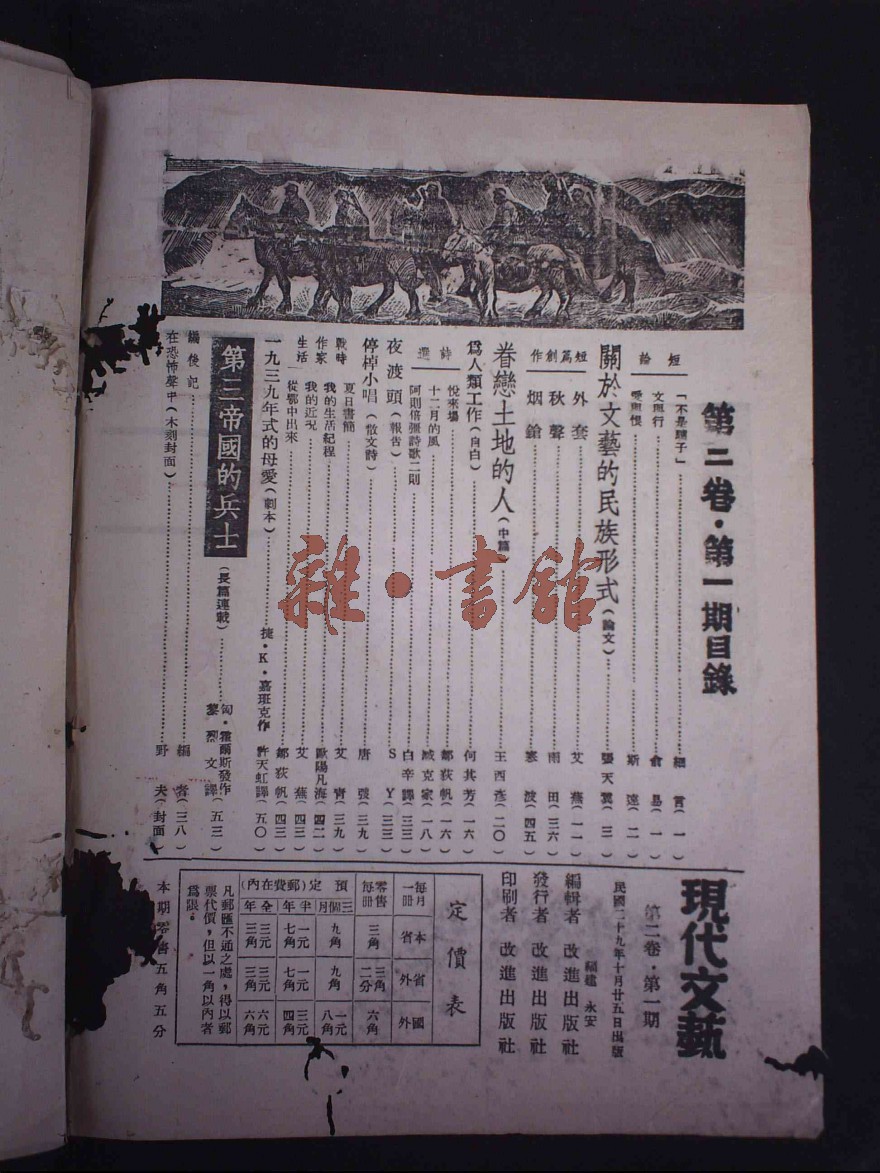 第二卷·第一期目錄
短論
「不是騙子」……細言(一)
文與行……俞易(一)
愛與恨……斯逵(二)
關於文藝的民族形式(論文)……張天翼(三)
短篇創作
外套……艾蕪(一一)
秋聲……雨田(三六)
烟鎗……寒波(四五)
眷戀土地的人(中篇)……王西彥(二〇)
爲人類工作(自白)……何其芳(一六)
詩選
悅來場……鄒荻帆(一六)
十二月的風……臧克家(一八)
阿則倍疆詩歌二則……白辛譯(三三)
夜渡頭(報告)……SY(三三)
停棹小唱(散文詩)……唐弢(三九)
戰時作家生活
夏日書簡……艾青(三九)
我的生活紀程……歐陽凡海(四二)
我的近況……艾蕪(四三)
從鄂中出來……鄒荻帆(四三)
一九三九年式的母愛(劇本)……捷·K·嘉班克作 許天虹譯(五〇)
第三帝國的兵士(長篇連載)……匈·霍爾斯發作 黎烈文譯(五三)
編後記……編者(三八)
在恐怖聲中(木刻封面)……野夫(封面)
現代文藝
第二卷·第一期
民國二十九年十月廿五日出版
福建 永安
編輯者 改進出版社
發行者 改進出版社
印刷者 改進出版社
定價表
每月一冊 本省 外省 國外
零售每冊 三角 三角二分 六角
預定(郵費在內)
三個月 九角 九角 一元八角
半年 一元七角 一元七角 三元四角
全年 三元三角 三元三角 六元六角
凡郵匯不通之處,得以郵
票代價,但以一角以內者
爲限。
本期零售五角五分
雜·書館